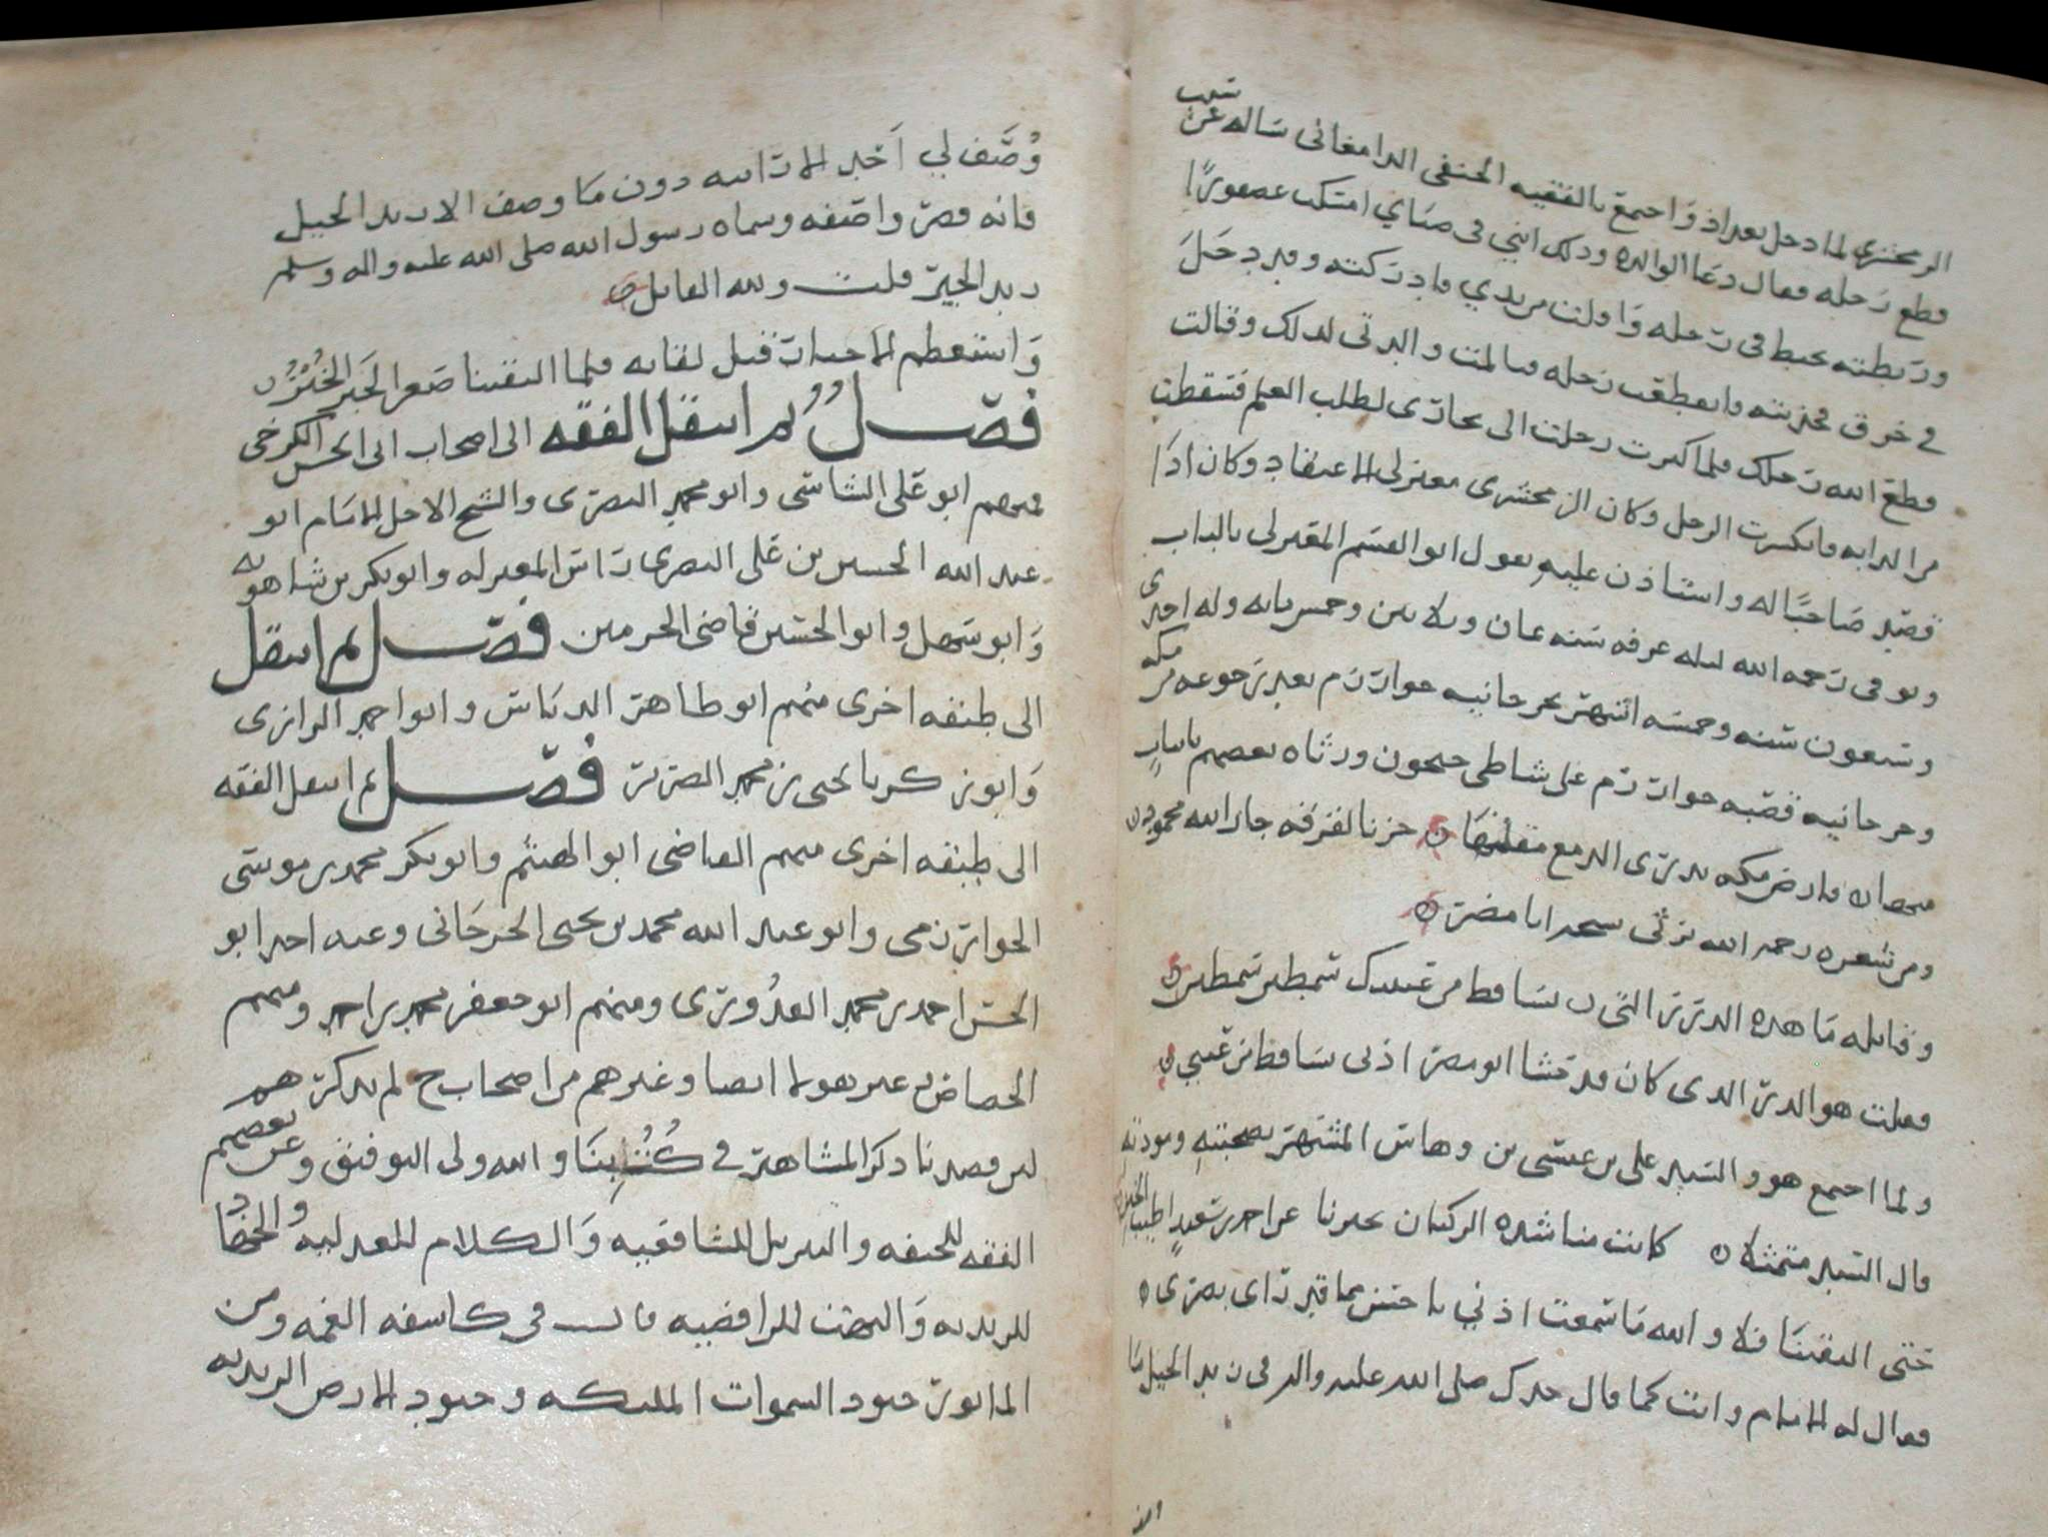 الزمخشري لما دخل بغداد واجتمع بالفقيه الحنفي الدامغاني سأله عن سبب
قطع رحله فقال دعا الوالده وذلك انني في صباي امسكت عصفورًا
وربطته بخيط في رجله وافلت من يدي فادركته وقد دخل
في خرق فجذبته وانقطعت رجله فتألمت والدتي لذلك وقالت
قطع الله رجلك فلما كبرت رحلت الى بخارى لطلب العلم فسقطت
من الدابه فانكسرت الرجل وكان الزمخشري معتزلي الاعتقاد وكان اذا
قصد صاحبًا له واستأذن عليه يقول ابو القسم المعتزلي بالباب
وتوفي رحمه الله ليله عرفه سنه ثمان وثلاثين وخمس مايه وله احدى
وسبعون سنه وخمسه اشهر بجرجانيه خوارزم بعد رجوعه من مكه
وجرجانيه قصبه خوارزم على شاطي جيحون ورثاه بعضهم بابيات
فارض مكه تذري الدمع مقلتها حزنا لفرقه جار الله محمود
ومن شعره رحمه الله يرثي شيخه ابا مضر
وقائله ما هذه الدرر التي تساقط من عينيك سمطين سمطين
فقلت هو الدر الذي كان قد حشا ابو مضر اذني تساقط من عيني
ولما اجتمع هو والسيد علي بن عيسى بن وهاس المشتهر بصحبته ومودته
قال السيد متمثلا كانت مسائله الركبان تخبرنا عن احمد بن سعيد اطيب الخبر
حتى التقينا فلا والله ما سمعت اذني باحسن مما قد راى بصري
فقال له الامام وانت كما قال جدك صلى الله عليه واله في زيد الخيل ما
وصف لي احد الا رايته دون ما وصف الا زيد الخيل
فانه فوق واصفه وسماه رسول الله صلى الله عليه واله وسلم
زيد الخير قلت ولله القائل
واستعظم الاخبار قبل لقائه فلما التقينا صغر الخبر الخبر
فصل ثم انتقل الفقه الى اصحاب ابي الحسن الكرخي
فمنهم ابو علي الشاشي وابو محمد البصري والشيخ الاجل الامام ابو
عبد الله الحسين بن علي البصري راس المعتزله وابو بكر بن شاهويه
وابو سهل وابو الحسين قاضي الحرمين فصل ثم انتقل
الى طبقه اخرى منهم ابو طاهر الدباس وابو احمد الرازي
وابو زكريا يحيى بن محمد الضرير فصل ثم انتقل الفقه
الى طبقه اخرى منهم القاضي ابو الهيثم وابو بكر محمد بن موسى
الخوارزمي وابو عبد الله محمد بن يحيى الجرجاني وعنه اخذ ابو
الحسن احمد بن محمد القدوري ومنهم ابو جعفر محمد بن احمد ومنهم
الجصاص غير هولا ايضا وغيرهم من اصحاب ح لم نذكر هم
لان قصدنا ذكر المشاهير في كتبنا والله ولي التوفيق وعن بعضهم
الفقه للحنفيه والتنزيل للشافعيه والكلام للعدليه والجهاد
للزيديه والبهت للرافضيه قال في كاشفه الغمه ومن
الماثور جنود السموات الملئكه وجنود الارض الزيديه